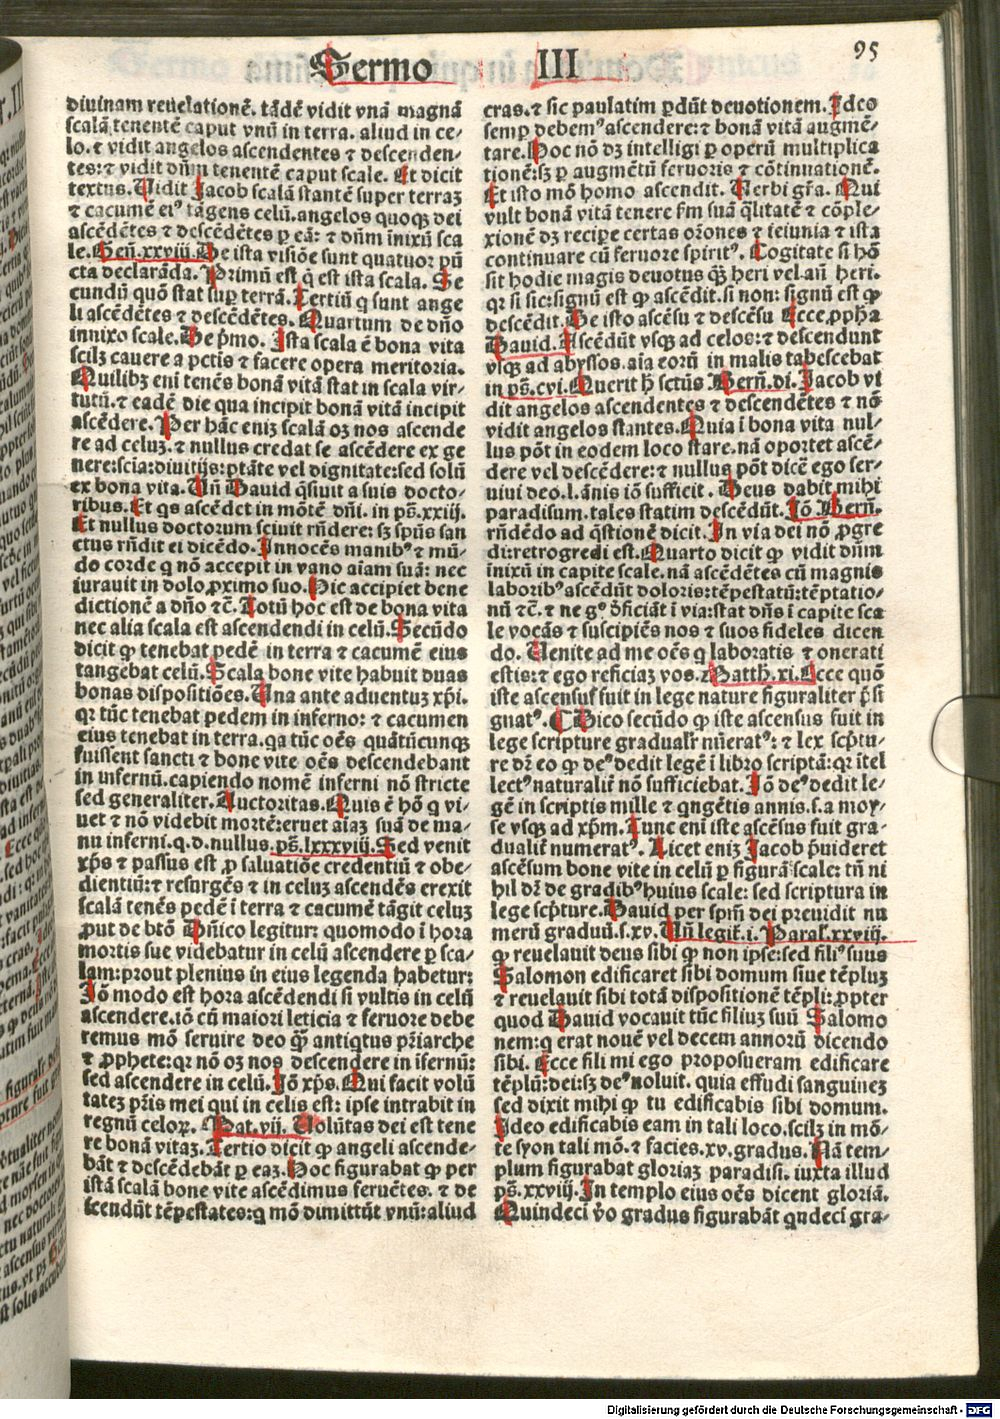 Sermo III
95
diuinam reuelationē. tādē vidit vnā magnā
scalā tenentē caput vnū in terra. aliud in ce/
lo. ⁊ vidit angelos ascendentes ⁊ descenden/
tes: ⁊ vidit dn̄m tenentē caput scale. Et dicit
textus. Uidit Jacob scalā stantē super terraʒ
⁊ cacumē eiꝰ tāgens celū. angelos quoqʒ dei
ascēdētes ⁊ descēdētes ꝑ eā: ⁊ dn̄m inixū sca
le. Gen̄. xxviij. De ista visiōe sunt quatuor pū
cta declarāda. Primū est q̄ est ista scala. Se
cundū quō stat suꝑ terrā. Tertiū q sunt ange
li ascēdētes ⁊ descēdētes. Quartum de dn̄o
innixo scale. De p̄mo. Ista scala ē bona vita
scilʒ cauere a pctis ⁊ facere opera meritoria.
Quilibʒ eni tenēs bonā vitā stat in scala vir/
tutū. ⁊ eadē die qua incipit bonā vitā incipit
ascēdere. Per hāc eniʒ scalā oʒ nos ascende
re ad celuʒ. ⁊ nullus credat se ascēdere ex ge
nere: scia: diuitijs: ptāte vel dignitate: sed solū
ex bona vita. Un̄ Dauid q̄siuit a suis docto/
ribus. Et qs ascēdet in mōtē dn̄i. in ps̄. xxiij.
Et nullus doctorum sciuit rn̄dere: sʒ spūs san
ctus rn̄dit ei dicēdo. Innocēs manibꝰ ⁊ mū/
do corde q nō accepit in vano aiam suā: nec
iurauit in dolo ꝓximo suo. Hic accipiet bene
dictionē a dn̄o ⁊c̄. Totū hoc est de bona vita
nec alia scala est ascendendi in celū. Secūdo
dicit ꝙ tenebat pedē in terra ⁊ cacumē eius
tangebat celū. Scala bone vite habuit duas
bonas dispositiōes. Una ante aduentuʒ xp̄i.
qꝛ tūc tenebat pedem in inferno: ⁊ cacumen
eius tenebat in terra. qa tūc oēs quātūcunqʒ
fuissent sancti ⁊ bone vite oēs descendebant
in infernū. capiendo nomē inferni nō stricte
sed generaliter. Auctoritas. Quis ē hō q vi/
uet ⁊ nō videbit mortē: eruet aiaʒ suā de ma/
nu inferni. q. d. nullus. ps̄. lxxxviij. Sed venit
xp̄s ⁊ passus est ꝓ saluatiōe credentiū ⁊ obe/
dientiū: ⁊ resurgēs ⁊ in celuʒ ascendēs erexit
scalā tenēs pedē i terra ⁊ cacumē tāgit celuʒ
ꝓut de btō Dn̄ico legitur: quomodo i hora
mortis sue videbatur in celū ascendere ꝑ sca/
lam: prout plenius in eius legenda habetur:
Iō modo est hora ascēdendi si vultis in celū
ascendere. iō cū maiori leticia ⁊ feruore debe
remus mō seruire deo q̄ꝫ antiqtus pr̄iarche
⁊ ꝓphete: qꝛ nō oʒ nos descendere in ifernū:
sed ascendere in celū. Iō xp̄s. Qui facit volū
tateʒ pr̄is mei qui in celis est: ipse intrabit in
regnū celoꝝ. Mat. vij. Uolūtas dei est tene
re bonā vitaʒ. Tertio dicit ꝙ angeli ascende/
bāt ⁊ descēdebāt ꝑ eaʒ. Hoc figurabat ꝙ per
istā scalā bone vite ascēdimus feruētes. ⁊ de
scendūt tēpestates: q mō dimittūt vnū: aliud
cras. ⁊ sic paulatim ꝑdūt deuotionem. Ideo
semꝑ debemꝰ ascendere: ⁊ bonā vitā augmē/
tare. Hoc nō dʒ intelligi ꝑ operū multiplica
tionē: sʒ ꝑ augmētū feruoris ⁊ cōtinuationē.
Et isto mō homo ascendit. Uerbi gr̄a. Qui
vult bonā vitā tenere ẜm suā q̄litatē ⁊ cōple/
xionē dʒ recipe certas or̄ones ⁊ ieiunia ⁊ ista
continuare cū feruore spiritꝰ. Cogitate si hō
sit hodie magis deuotus q̄ꝫ heri vel an̄ heri.
qꝛ si sic: signū est ꝙ ascēdit. si non: signū est ꝙ
descēdit. De isto ascēsu ⁊ descēsu Ecce ꝓpha
Dauid. Ascēdūt vsqʒ ad celos: ⁊ descendunt
vsqʒ ad abyssos. aīa eorū in malis tabescebat
in ps̄. cvi. Querit h̄ sctūs Bern̄. di. Jacob vi
dit angelos ascendentes ⁊ descendētes ⁊ nō
vidit angelos stantes. Quia i bona vita nul/
lus pōt in eodem loco stare. nā oportet ascē/
dere vel descēdere: ⁊ nullus pōt dicē ego ser/
uiui deo. l. ānis iō sufficit. Deus dabit mihi
paradisum. tales statim descēdūt. Iō Bern̄.
rn̄dēdo ad q̄stionē dicit. In via dei nō ꝓgre
di: retrogredi est. Quarto dicit ꝙ vidit dn̄m
inixū in capite scale. nā ascēdētes cū magnis
laboribꝰ ascēdūt doloris: tēpestatū: tēptatio/
nū ⁊c̄. ⁊ ne gꝰ d̄ficiāt i via: stat dn̄s i capite sca
le vocās ⁊ suscipiēs nos ⁊ suos fideles dicen
do. Uenite ad me oēs q laboratis ⁊ onerati
estis: ⁊ ego reficiaʒ vos. Matth. xi. Ecce quō
iste ascensus fuit in lege nature figuraliter p̄si
gnatꝰ. ¶ Dico secūdo ꝙ iste ascensus fuit in
lege scripture gradualr̄ nūeratꝰ: ⁊ lex scp̄tu/
re dr̄ eo ꝙ deꝰ dedit legē i libro scriptā: qꝛ itel
lectꝰ naturalit̄ nō sufficiebat. Iō deꝰ dedit le/
gē in scriptis mille ⁊ qngētis annis. s. a moy/
se vsqʒ ad xp̄m. Tunc eni iste ascēsus fuit gra/
dualit̄ numeratꝰ. Licet eniʒ Jacob p̄uideret
ascēsum bone vite in celū ꝑ figurā scale: tn̄ ni
hil dr̄ de gradibꝰ huius scale: sed scriptura in
lege scp̄ture. Dauid per spm̄ dei preuidit nu
merū graduū. s. xv. Un̄ legit̄. i. Paral̄. xxviij.
ꝙ reuelauit deus sibi ꝙ non ipse: sed filiꝰ suus
Salomon edificaret sibi domum siue tēpluʒ
⁊ reuelauit sibi totā dispositionē tēpli: ꝓpter
quod Dauid vocauit tūc filiuʒ suū Salomo
nem: q erat nouē vel decem annorū dicendo
sibi. Ecce fili mi ego proposueram edificare
tēplū: dei: sʒ deꝰ noluit. quia effudi sanguineʒ
sed dixit mihi ꝙ tu edificabis sibi domum.
Ideo edificabis eam in tali loco. scilʒ in mō/
te syon tali mō. ⁊ facies. xv. gradus. Nā tem/
plum figurabat gloriaʒ paradisi. iuxta illud
ps̄. xxviij. In templo eius oēs dicent gloriā.
Quindeci v̄o gradus figurabāt qndeci gra/
Digitalisierung gefördert durch die Deutsche Forschungsgemeinschaft - DFG